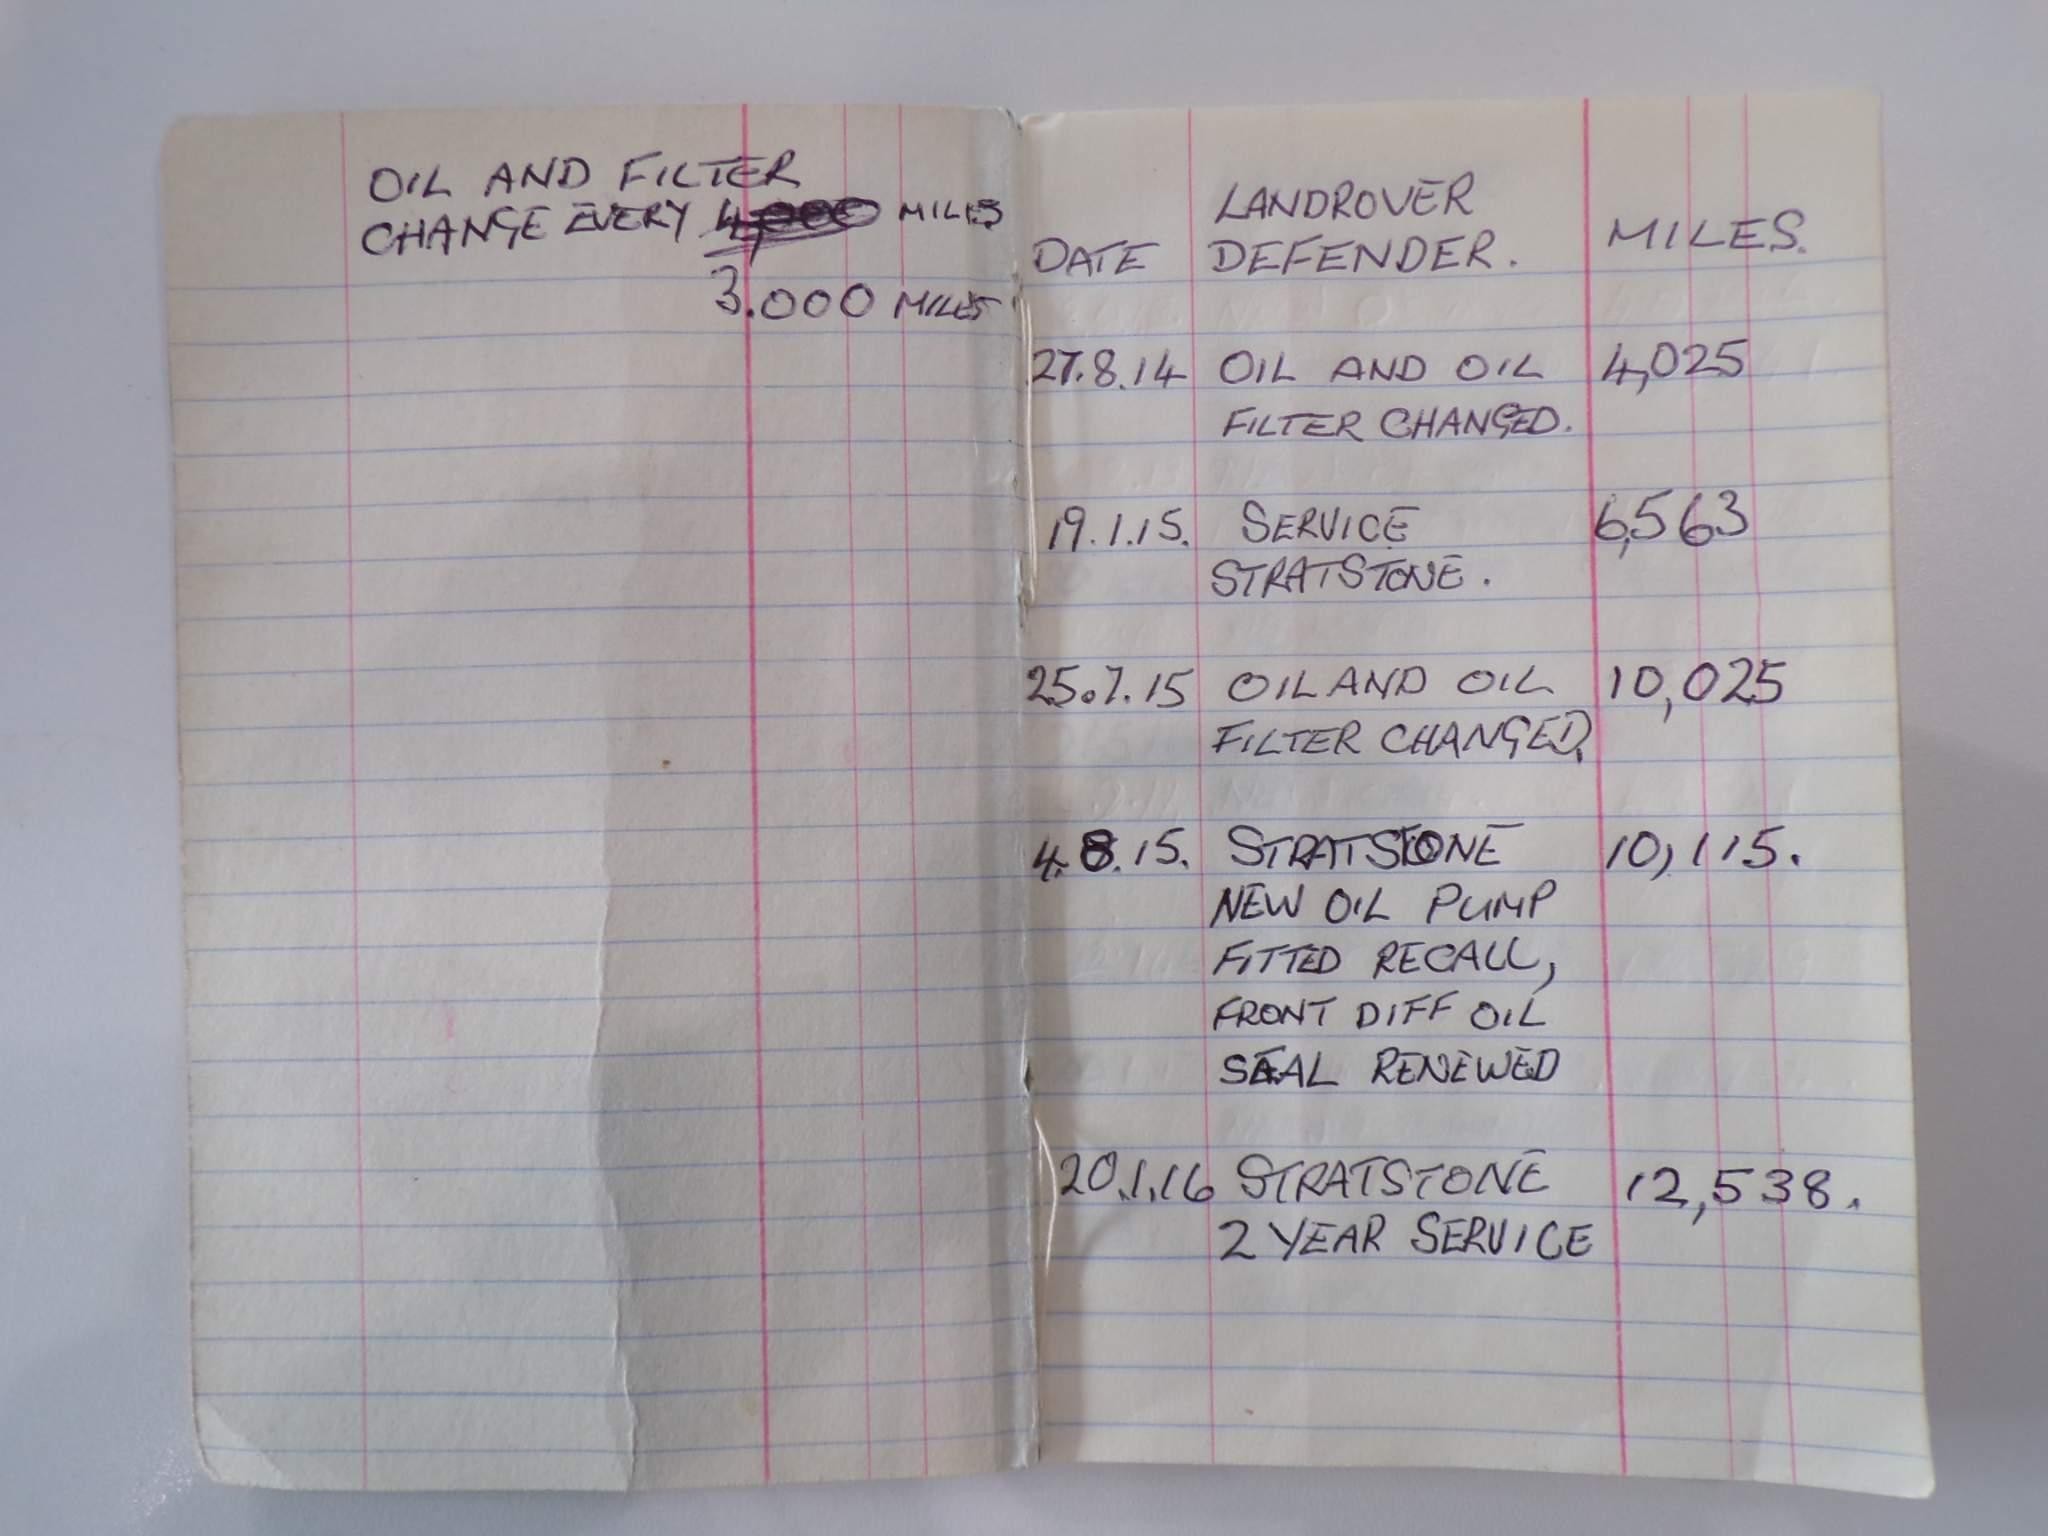 OIL AND FILTER
CHANGE EVERY 4,000 MILES
3.000 MILES
LANDROVER
DATE DEFENDER. MILES.
27.8.14 OIL AND OIL 4,025
FILTER CHANGED.
19.1.15. SERVICE 6,563
STRATSTONE.
25.7.15 OIL AND OIL 10,025
FILTER CHANGED.
4.8.15. STRATSTONE 10,115.
NEW OIL PUMP
FITTED RECALL,
FRONT DIFF OIL
SEAL RENEWED
20.1.16 STRATSTONE 12,538.
2 YEAR SERVICE